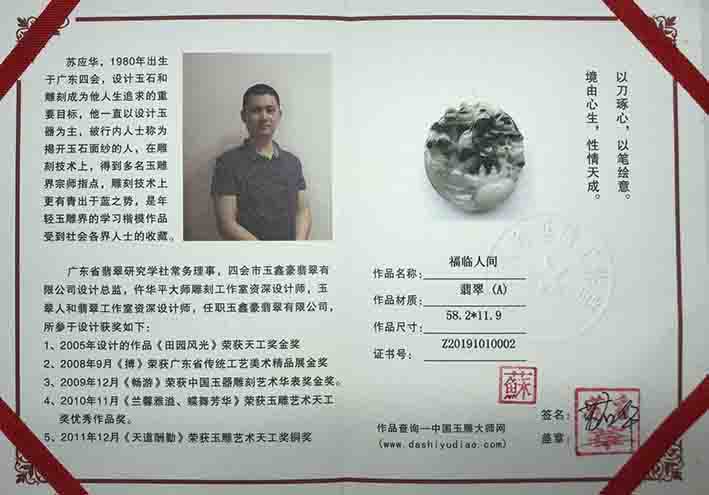 苏应华，1980年出生
于广东四会，设计玉石和
雕刻成为他人生追求的重
要目标，他一直以设计玉
器为主，被行内人士称为
揭开玉石面纱的人，在雕
刻技术上，得到多名玉雕
界宗师指点，雕刻技术上
更有青出于蓝之势，是年
轻玉雕界的学习楷模作品
受到社会各界人士的收藏。
广东省翡翠研究学社常务理事，四会市玉鑫豪翡翠有
限公司设计总监，许华平大师雕刻工作室资深设计师，玉
翠人和翡翠工作室资深设计师，任职玉鑫豪翡翠有限公司，
所参于设计获奖如下：
1、2005年设计的作品《田园风光》荣获天工奖金奖
2、2008年9月《搏》荣获广东省传统工艺美术精品展金奖
3、2009年12月《畅游》荣获中国玉器雕刻艺术华表奖金奖。
4、2010年11月《兰馨雅溢、蝶舞芳华》荣获玉雕艺术天工
奖优秀作品奖。
5、2011年12月《天道酬勤》荣获玉雕艺术天工奖铜奖
以刀琢心，以笔绘意。
境由心生，性情天成。
作品名称：福临人间
作品材质：翡翠 (A)
作品尺寸：58.2*11.9
证书号：Z20191010002
蘇
签名：
盖章：
作品查询—中国玉雕大师网
(www.dashiyudiao.com)